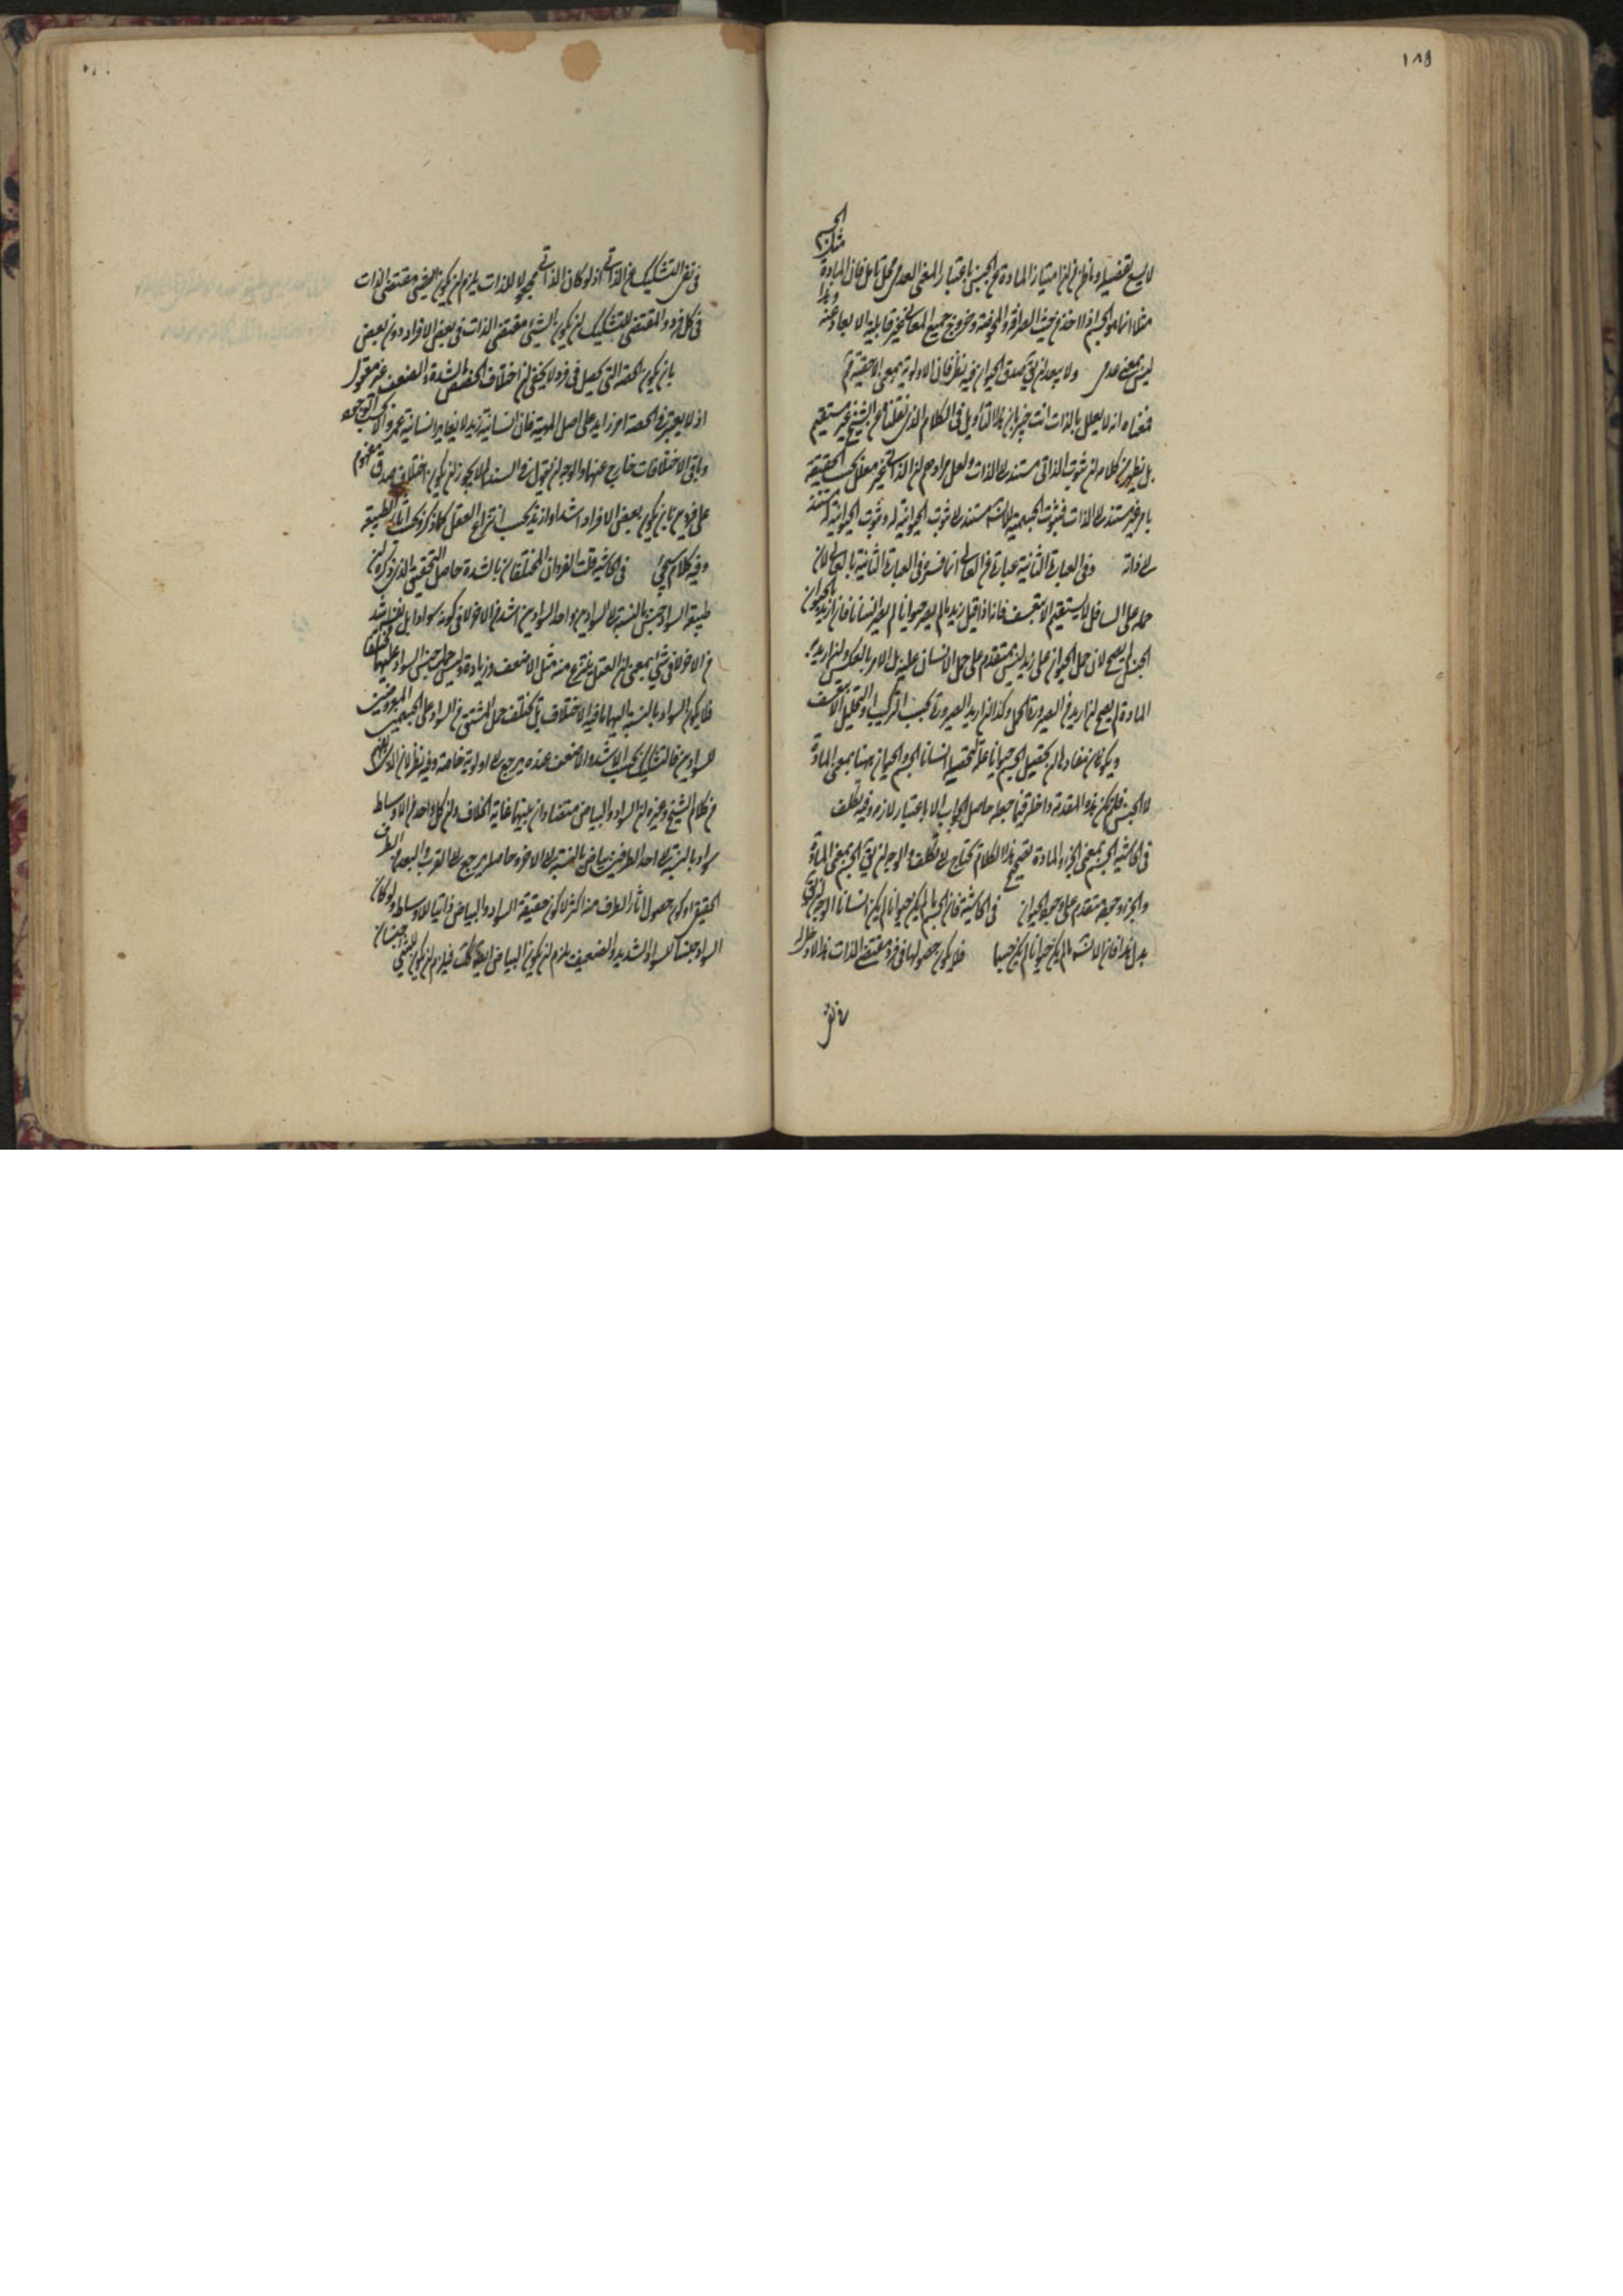 ١٨٩
لا يسع تفصيله وبانه في ان امتياز المادة عن الجنس باعتبار المعنى العدمي محل تامل فان المادة
مثلا انما هو الجسم
ليس بمعنى عدمي ولا يبعد ان يق بصدق الحيوان فيه نظر فان الاولوية بمعنى الاحقية
فمعناه انه لا يعلل بالذات انت خبير بان هذا التأويل في الكلام الذي نقلناه عن الشيخ غير مستقيم
بل يظهر من كلامه ان ثبوت الذاتي مستند الى الذات ولعل مرادهم ان الذاتي غير معلل بحسب الحقيقة
بامر غير مستند الى الذات فثبوت الجسمية للانسان مستند الى ثبوت الحيوانية له وثبوت الحيوانية له مستند
الى ذاته وفي العبارة الثانية عبارة عن العالي انما فسر في العبارة الثانية بالعالي لان
حمله على السافل لا يستقيم الا بتعسف فانه اذا قيل زيد ما لم يصر حيوانا لم يصر انسانا فان اريد بالحيوان
الجنس لم يصح لان حمل الحيوان على زيد ليس بمتقدم على حمل الانسان عليه بل الامر بالعكس وان اريد به
المادة لم يصح ان اريد من الصيرورة الحمل وكذا ان اريد الصيرورة بحسب التركيب او التحليل الا بتعسف
ويكون مفاده ان تحصيل الجسم حيوانا علة لتحصيله انسانا الجسم والحيوان ههنا بمعنى المادة
لا الجنس فلم تكن هذه المقدمة داخلة فيما جعله حاصل الجواب الا باعتبار لازمه وفيه تكلف
في الحاشية الجسم بمعنى الجزء والمادة تصحيح هذا الكلام يحتاج الى تكلف والوجه ان يق الجسم بمعنى المادة
والجزء وجوده متقدم على وجود الحيوان في الحاشية فان الجسم ما لم يكن حيوانا لم يكن انسانا الوجه ان يق
بدل هذا فان الانسان ما لم يكن حيوانا لم يكن جسما فلا يكون حصولها في فرد مقتضى الذات هذا لا دخل له
في نفي
في نفي التشكيك عن الذاتي اذ لو كان الذاتي مجعولا للذات يلزم ان يكون الشيء مقتضى الذات
في كل فرد والمقتضي للتشكيك ان يكون الشيء مقتضى الذات في بعض الافراد دون بعض
بان يكون الحصة التي تحصل في فرد لا يخفى ان اختلاف الحصص بالشدة والضعف غير معقول
اذ لا يعتبر في الحصة امر زايد على اصل المهية فان انسانية زيد لا يغاير انسانية عمرو الا بحسب
وباقي الاختلافات خارج عنها والوجه ان يقول في السند لم لا يجوز ان يكون اختلاف صدق مفهوم
على فردين بان يكون بعض الافراد اشد او ازيد بحسب انتزاع العقل كما ذكر وبحسب آثار الطبيعة
وفيه كلام سيجيء في الحاشية قلت الفردان المختلفان بالشدة حاصل التحقيق الذي ذكره ان
طبيعة السواد جنس بالنسبة الى السوادين واحد السوادين اشد من الاخر لا في كونه سوادا بل نفسه اشد
من الاخر لا في شيء بمعنى ان العقل ينتزع منه مثل الاضعف وزيادة وليس حمل جنس السواد عليهما مختلفا
فلا يكون السواد بالنسبة اليهما ما فيه الاختلاف بل يختلف حمل المشتق من السواد على الجسمين المعروضين
للسوادين فالتشكيك بحسب الاشد والاضعف عنده يرجع الى اولوية خاصة وفيه نظر لان
من كلام الشيخ وغيره ان السواد والبياض متضادان بينهما غاية الخلاف وان كل واحد من الاوساط
سواد بالنسبة الى احد الطرفين بياض بالنسبة الى الاخر وحاصله يرجع الى القرب والبعد من الطرف
الحقيقي او كون حصول آثار الطرف منه اكثر لا كون حقيقة السواد والبياض ذاتيا للاوساط ولو كان
السواد جنسا للسواد الشديد والضعيف يلزم ان يكون البياض ايضا كذلك فيلزم ان يكون للشيء جنسان